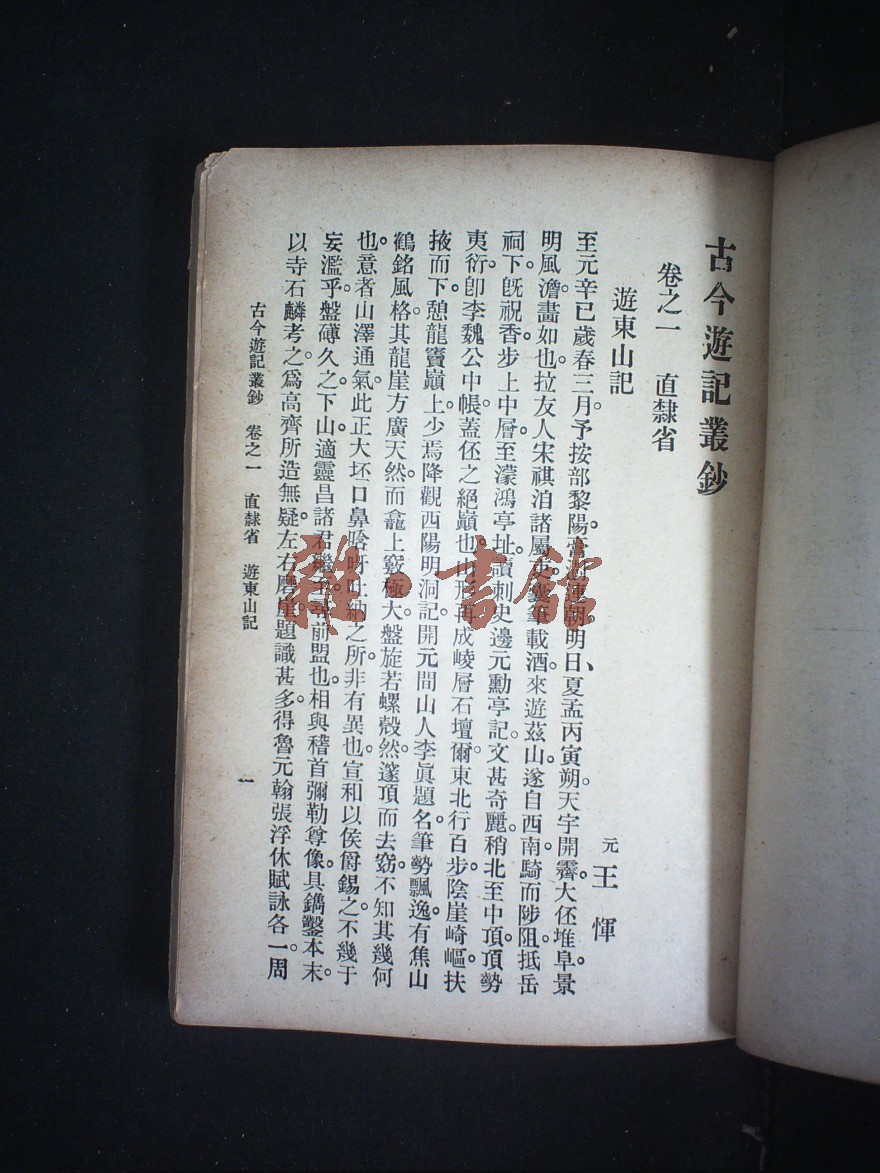 古今遊記叢鈔
卷之一　直隸省
遊東山記
元　王　惲
至元辛巳歲春三月。予按部黎陽。連朝。明日、夏孟丙寅朔。天宇開霽。大伾堆阜。景
明風澹。畫如也。拉友人宋祺洎諸屬載酒來遊茲山。遂自西南騎而陟阻。抵岳
祠下。旣祝香。步上中層。至濛鴻亭址。讀刺史邊元勳亭記。文甚奇麗。稍北至中頂。頂勢
夷衍。卽李魏公中帳。蓋伾之絕巔也。山形再成。崚層石壇爾。東北行百步。陰崖崎嶇。扶
掖而下。憩龍竇巔上。少焉降觀西陽明洞。記開元間山人李眞題名。筆勢飄逸。有焦山
鶴銘風格。其龍崖方廣。天然而龕。上竅極大。盤旋若螺殼然。邃頂而去。窈不知其幾何
也。意者山澤通氣。此正大坯口鼻。哈呀吐納之所。非有異也。宣和以侯爵錫之。不幾于
妄濫乎。盤礴久之。下山。適靈昌諸君繼至。尋前盟也。相與稽首彌勒尊像。具鐫鑿本末。
以寺石麟考之。爲高齊所造無疑。左右磨崖。題識甚多。得魯元翰張浮休賦詠各一。周
古今遊記叢鈔　卷之一　直隸省　遊東山記
一
雜·書館